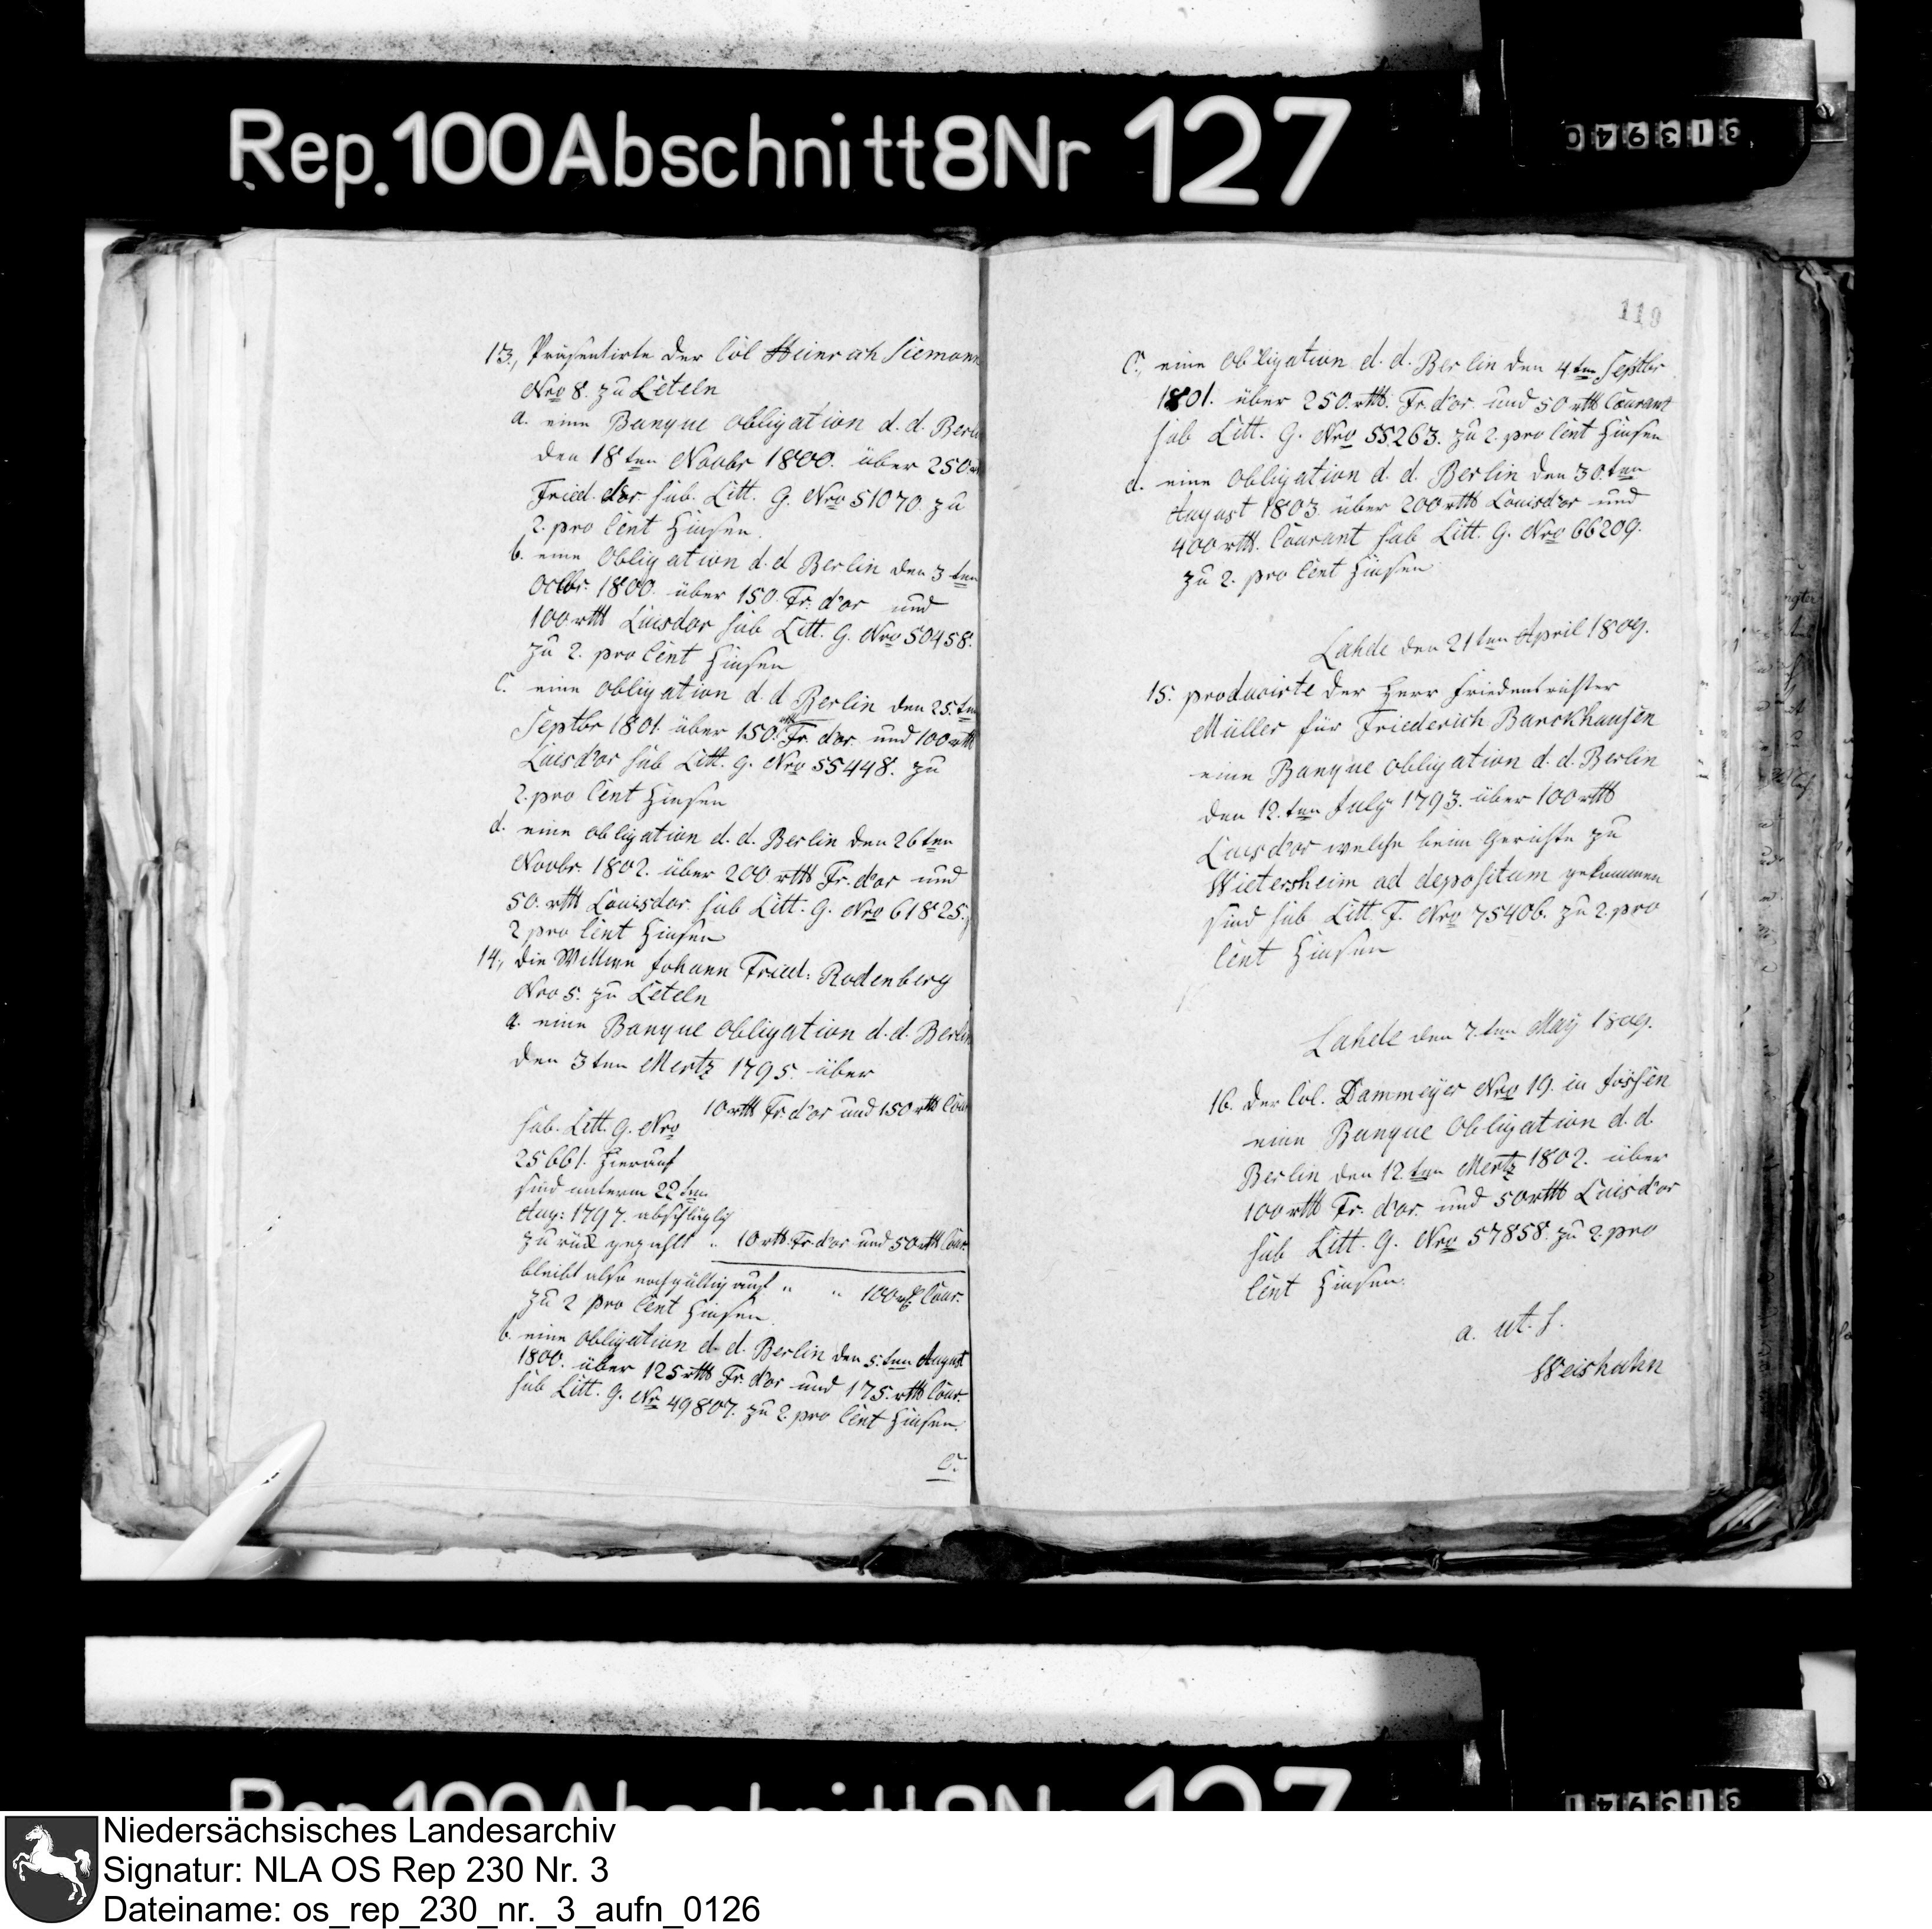 Rep. 100 Abschnitt 8 Nr 127
313940
13., Präsentirte der Col Heinrich Siemann
Nro 8. zu Leteln
a. eine Banque obligation d. d. Berlin
den 18ten Novbr 1800. über 250 rtt
Fried. d'or sub. Litt. G. Nro 51070. zu
2. pro Cent Zinsen.
b. eine Obligation d. d Berlin den 3ten
Octbr. 1800. über 150. Fr. d'or und
100 rtt Luisdor sub Litt. G. Nro 50458.
zu 2. pro Cent Zinsen
C. eine obligation d. d Berlin den 25.ten
Septbr 1801. über 150. rtt Fr. d'or. und 100 rtt
Luisd'or sub Litt. G. Nro 55448. zu
2. pro Cent Zinsen
d. eine obligation d. d. Berlin den 26ten
Novbr. 1802. über 200 rtt Fr. d'or und
50. rtt Louisdor. sub Litt. G. Nro 61825.
2 pro Cent Zinsen
14., die Wittwe Johann Fried: Rodenberg
Nro 5. zu Leteln
a. eine Banque obligation d. d. Berlin
den 3ten Mertz 1795. über
10 rtt Fr. d'or und 150 rtt Cour
sub. Litt. G. Nro
25661. Hierauf
sind unterm 22ten
Aug: 1797. abschläglich
zurück gezahlt " 10 rtt. Fr. d'or und 50 rtt Cour.
bleibt also noch gültig auf " " 100 rtt Cour.
zu 2 pro Cent Zinsen.
b. eine obligation d. d. Berlin den 5.ten August
1800. über 125 rtt Fr. d'or und 175. rtt Cour.
sub Litt. G. Nr 49807. zu 2. pro Cent Zinsen.
C.
119
C., eine obligation d. d. Berlin den 4ten Septbr
1801. über 250. rtt. Fr. d'or. und 50 rtt Courant
sub Litt. G. Nro 55263. zu 2. pro Cent Zinsen
d. eine obligation d. d. Berlin den 30.ten
August 1803. über 200 rtt Louisd'or und
400 rtt. Courant sub Litt. G. Nro 66209.
zu 2. pro Cent Zinsen
Lahde den 21ten April 1809.
15. producirte der Herr Friedensrichter
Müller für Friederich Barckhausen
eine Banque obligation d. d. Berlin
den 12.ten July 1793. über 100 rtt
Luisd'or welche beim Gerichte zu
Wietersheim ad depositum gekommen
sind sub Litt. F. Nro 75406. zu 2. pro
Cent Zinsen
Lahde den 7.ten May 1809.
16. der Col. Dammeyer Nro 19. in Jössen
eine Banque Obligation d. d.
Berlin den 12.ten Mertz 1802. über
100 rtt Fr. d'or. und 50 rtt Luisd'or
sub Litt. G. Nro 57858. zu 2. pro
Cent Zinsen.
a. ut. s.
Weishahn
Niedersächsisches Landesarchiv
Signatur: NLA OS Rep 230 Nr. 3
Dateiname: os_rep_230_nr._3_aufn_0126